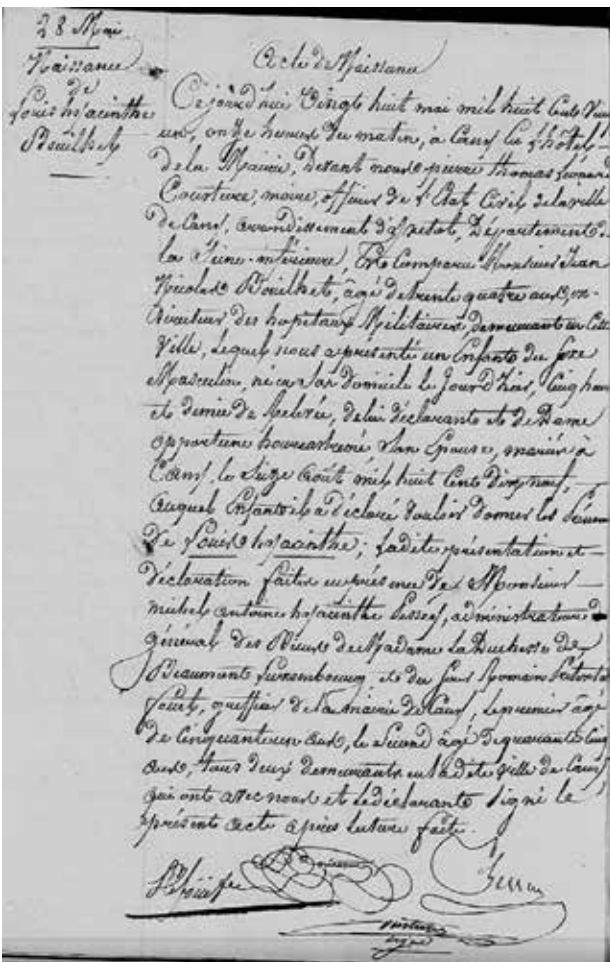 28 Mai
Naissance
de
Louis hyacinthe
Bouilhet
Acte de Naissance
Cejourd'hui Vingt huit mai mil huit Cent Vingt
un, onze heures du matin, à Cany En l'hôtel
de la Mairie, Devant nous pierre thomas
Couture, maire, officier de l'Etat Civil de la ville
de Cany, arrondissement d'yvetot, Département de
la Seine-inférieure, Est Comparu Monsieur Jean
Nicolas Bouilhet, âgé de trente quatre ans, Ex-
Directeur des hopitaux Militaires, demeurant en Cette
Ville, Lequel nous a présenté un Enfant du Sexe
Masculin, né en Son Domicile le Jour D'hier, Cinq heures
et demie de Relevée, de lui déclarant et de Dame
opportune Son Epouse, mariés à
Cany, le Seize Août mil huit Cent Dix neuf,
auquel Enfant il a déclaré Vouloir donner les Prénoms
De Louis hyacinthe; Ladite présentation et
Déclaration faites en présence De Monsieur
michel antoine hyacinthe administrateur
général des Biens de Madame La Duchesse de
Beaumont Luxembourg et du Sieur Romain
greffier de la mairie de Cany, Le premier âgé
de Cinquante un ans, Le Second âgé De quarante Cinq
ans, tous deux demeurants en Ladite ville de Cany
qui ont avec nous et le déclarant Signé le
présent acte après Lecture faite.